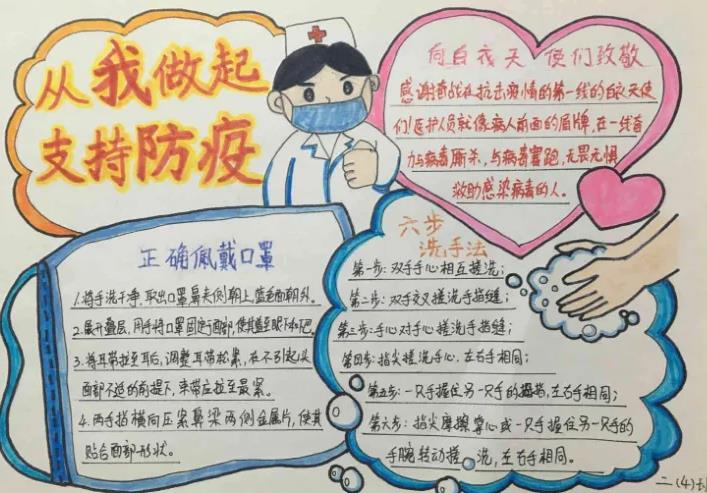 从我做起
支持防疫
向白衣天使们致敬
感谢奋战在抗击疫情的第一线的白衣天使
们!医护人员就像病人前面的盾牌,在一线奋
力与病毒厮杀,与病毒赛跑,无畏无惧
救助感染病毒的人。
正确佩戴口罩
1.将手洗干净,取出口罩鼻夹侧朝上,蓝色面朝外。
2.展开叠层,用手将口罩固定于面部,使其盖至眼下和下巴。
3.将耳带拉至耳后,调整耳带松紧,在不引起头
面部不适的前提下,耳带应拉至最紧。
4.两手指横向压紧鼻梁两侧金属片,使其
贴合面部形状。
六步
洗手法
第一步:双手手心相互搓洗;
第二步:双手交叉搓洗手指缝;
第三步:手心对手心搓洗手指缝;
第四步:指尖搓洗手心,左右手相同;
第五步:一只手握住另一只手的拇指,左右手相同;
第六步:指尖摩擦掌心或一只手握住另一只手的
手腕转动搓洗,左右手相同。
二(4)